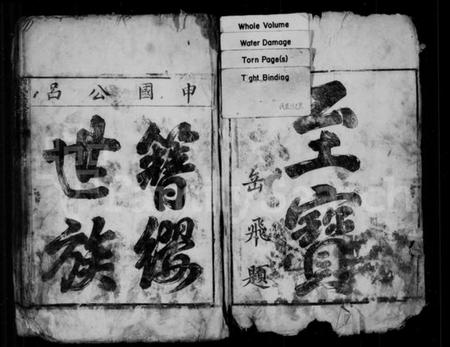 Whole Volume
Water Damage
Torn Page(s)
Tight Binding
至寶
岳飛題
申國公呂
簪纓
世族